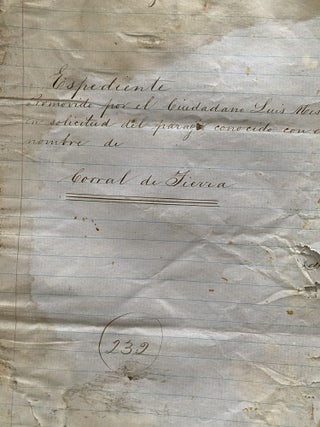 Espediente
Promovido por el Ciudadano Luis
en solicitud del parage conocido con
nombre de
Corral de Tierra
232